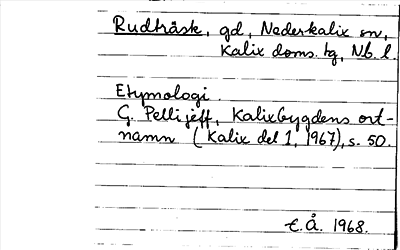 Rudträsk, gd, Nederkalix sn,
Kalix doms. tg, Nb. l.
Etymologi.
G. Pellijeff, Kalixbygdens ort-
namn (Kalix del 1, 1967), s. 50.
E.Å. 1968.